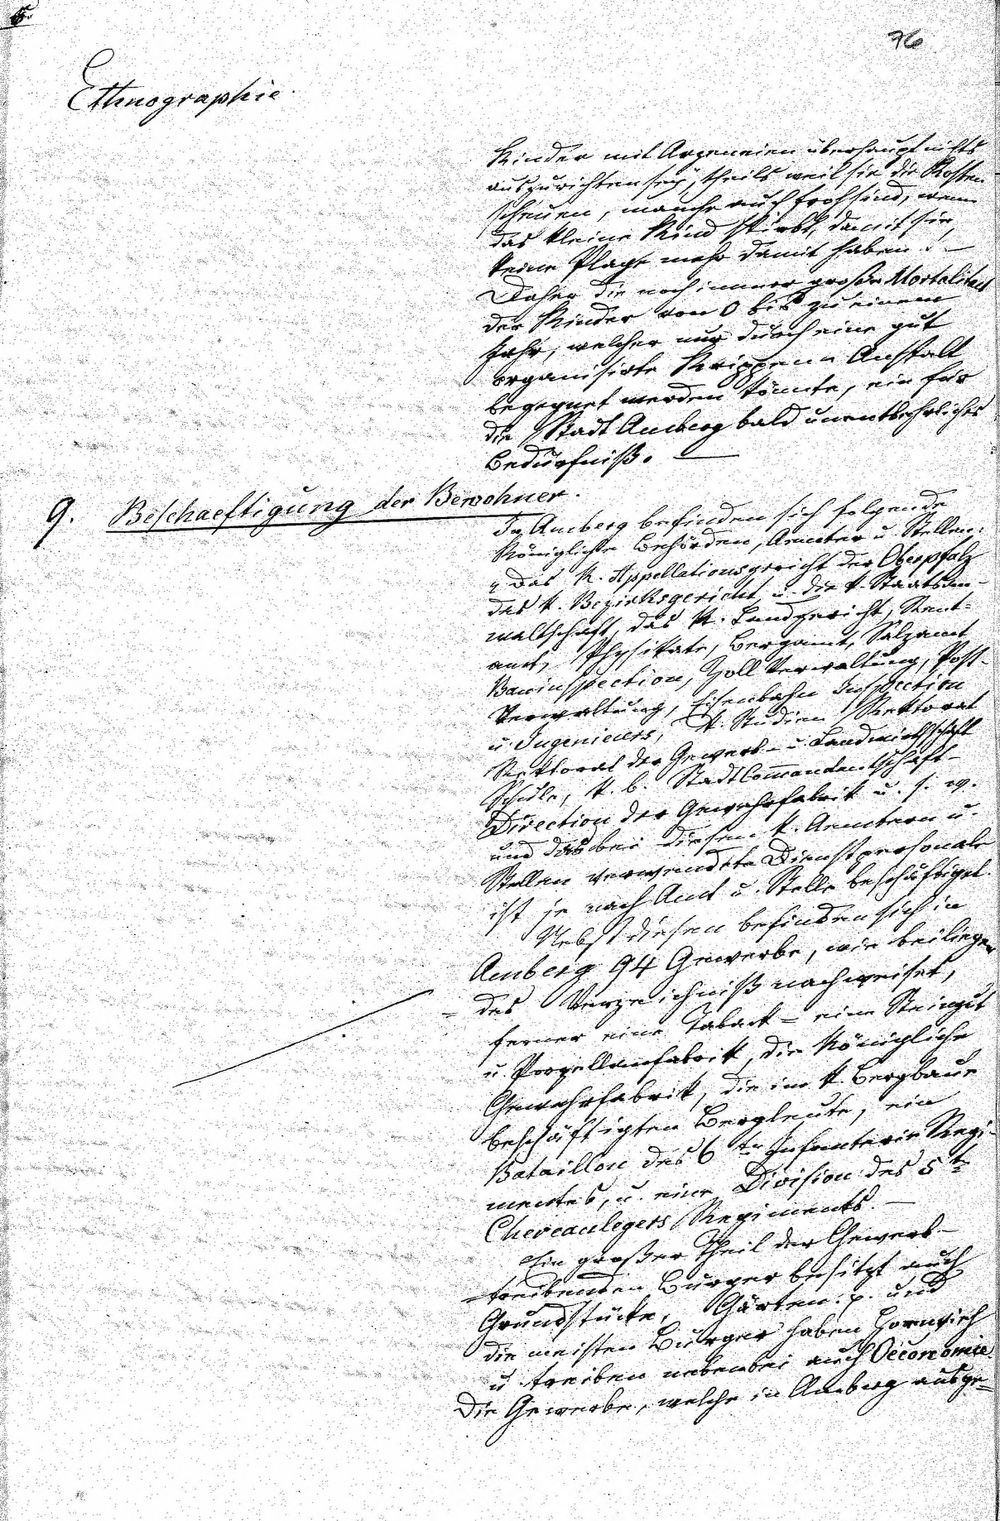 76
Ethnographie.
Kinder mit Arzeneien überhaupt nichts
auszurichten sey, theils weil sie die Kosten
scheuen, manche auch froh sind, wenn
das kleine Kind stirbt, damit sie
keine Plage mehr damit haben. —
Daher die noch immer große Mortalitaet
der Kinder von 0 bis zu einem
Jahr, welcher nur durch eine gut
organisirte Krippen-Anstalt
begegnet werden könnte, ein für
die Stadt Amberg bald unentbehrliches
Bedürfniß. —
9. Beschaeftigung der Bewohner.
In Amberg befinden sich folgende
Königliche Behörden, Aemter u. Stellen:
Das K. Appellationsgericht der Oberpfalz
das k. Bezirksgericht u. die k. Staatsan-
waltschaft, das K. Landgericht, Rent-
amt, Physikate, Bergamt, Salzamt
Bauinspection, Zoll Verwaltung, Post-
Verwaltung, Eisenbahn Inspection
u. Ingenieurs, k. Studien Rektorat
Rektorat der Gewerb- u. Landwirthschaft
Schule, k. b. Stadtcommandantschaft-
Direction der Gewehrfabrik u. s. w.
und das bei diesen k. Aemtern u.
Stellen verwendete Dienstpersonale
ist je nach Amt u. Stelle beschäftiget.
Nebst diesen befinden sich in
Amberg 94 Gewerbe, wie beiliegen-
des Verzeichniß nachweiset,
ferner eine Taback- eine Steingut
u. Porzellanfabrik, die Königliche
Gewehrfabrik, die im k. Bergbaue
beschäftigten Bergleute, ein
Bataillon des 6ten Infanterie Regi-
mentes, u. eine Division des 5ten
Cheveaulegers Regiments. —
Ein großer Theil der Gewerb-
treibenden Bürger besitzt auch
Grundstücke, Gärten p. und
die meisten Bürger haben Hornvieh
u. treiben nebenbei auch Oeconomie.
Die Gewerbe, welche in Amberg ausge-